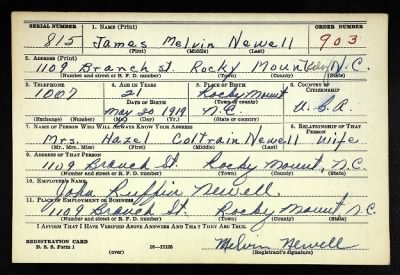 SERIAL NUMBER 1. NAME (Print) ORDER NUMBER
815 James Melvin Newell 903
(First) (Middle) (Last)
2. ADDRESS (Print)
1109 Branch st. Rocky Mount N.C.
(Number and street or R. F. D. number) (Town) (County) (State)
3. TELEPHONE 4. AGE IN YEARS 5. PLACE OF BIRTH 6. COUNTRY OF CITIZENSHIP
1007 21 Rocky Mount
DATE OF BIRTH (Town) (County)
May 20 1919 N.C. U.S.A.
(Exchange) (Number) (Mo.) (Day) (Yr.) (State or country)
7. NAME OF PERSON WHO WILL ALWAYS KNOW YOUR ADDRESS 8. RELATIONSHIP OF THAT PERSON
Mrs. Hazel Coltrain Newell wife
(Mr., Mrs., Miss) (First) (Middle) (Last)
9. ADDRESS OF THAT PERSON
1109 Branch St. Rocky Mount, N.C.
(Number and street or R. F. D. number) (Town) (County) (State)
10. EMPLOYER'S NAME
John Ruffin Newell
11. PLACE OF EMPLOYMENT OR BUSINESS
1109 Branch St. Rocky Mount N.C.
(Number and street or R. F. D. number) (Town) (County) (State)
I AFFIRM THAT I HAVE VERIFIED ABOVE ANSWERS AND THAT THEY ARE TRUE.
REGISTRATION CARD Melvin Newell
D. S. S. Form 1 (over) (Registrant's signature)